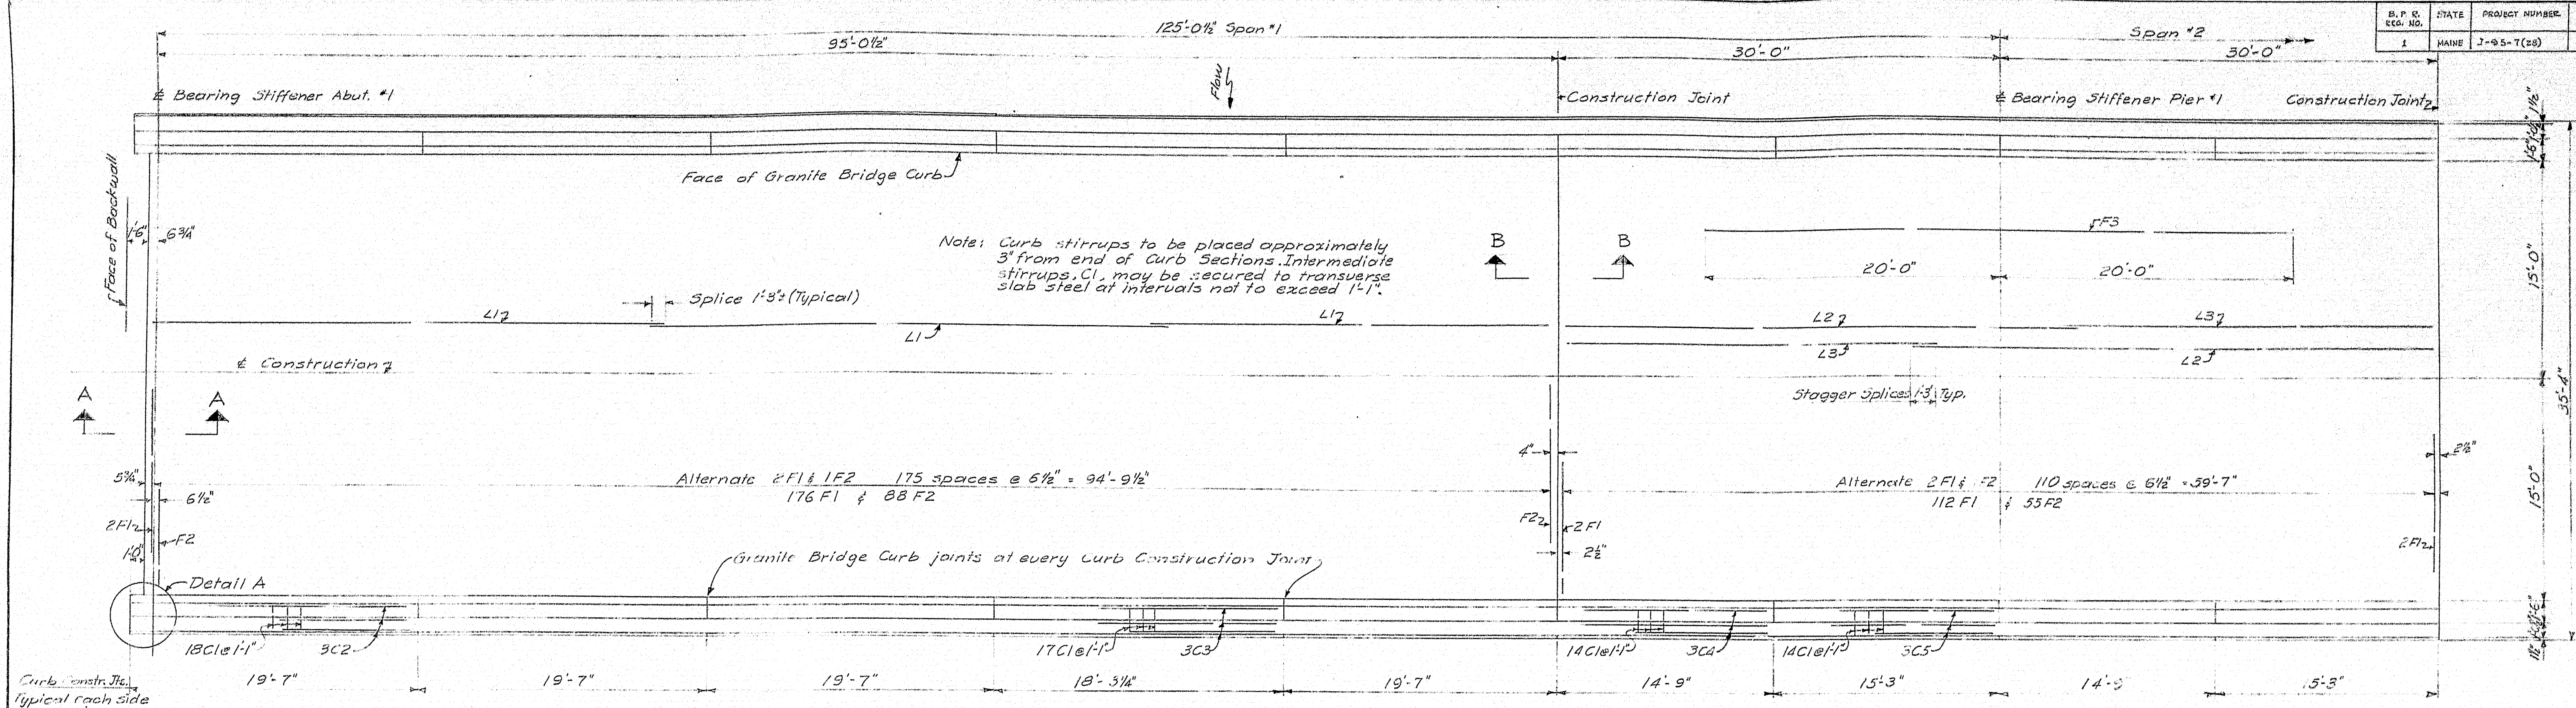 B.P.R. REG. NO. STATE PROJECT NUMBER
1 MAINE I-95-7(28)
125'-0½" Span #1
Span #2
95'-0½"
30'-0"
30'-0"
Flow
℄ Bearing Stiffener Abut. #1
Construction Joint
℄ Bearing Stiffener Pier #1
Construction Joint
1½"
Face of Granite Bridge Curb
Face of Backwall
1'-6"
6¾"
Note: Curb stirrups to be placed approximately
3" from end of Curb Sections. Intermediate
stirrups, C1, may be secured to transverse
slab steel at intervals not to exceed 1'-1".
B
B
F3
20'-0"
20'-0"
15'-0"
Splice 1'-3"± (Typical)
L1
L1
L1
L2
L3
L3
L2
℄ Construction
Stagger Splices 1'-3" Typ.
35'-4"
A
A
5¾"
6½"
4"
2½"
Alternate 2F1 & 1F2 175 spaces @ 6½" = 94'-9½"
176 F1 & 88 F2
Alternate 2F1 & F2 110 spaces @ 6½" = 59'-7"
112 F1 & 55 F2
15'-0"
2F1
F2
1'-0"
F2
2F1
2½"
2F1
Granite Bridge Curb joints at every Curb Construction Joint
Detail A
18C1@1'-1"
3C2
17C1@1'-1"
3C3
14C1@1'-1"
3C4
14C1@1'-1"
3C5
1½"
Curb Constr. Jt.
Typical each side
19'-7"
19'-7"
19'-7"
18'-3¼"
19'-7"
14'-9"
15'-3"
14'-9"
15'-3"